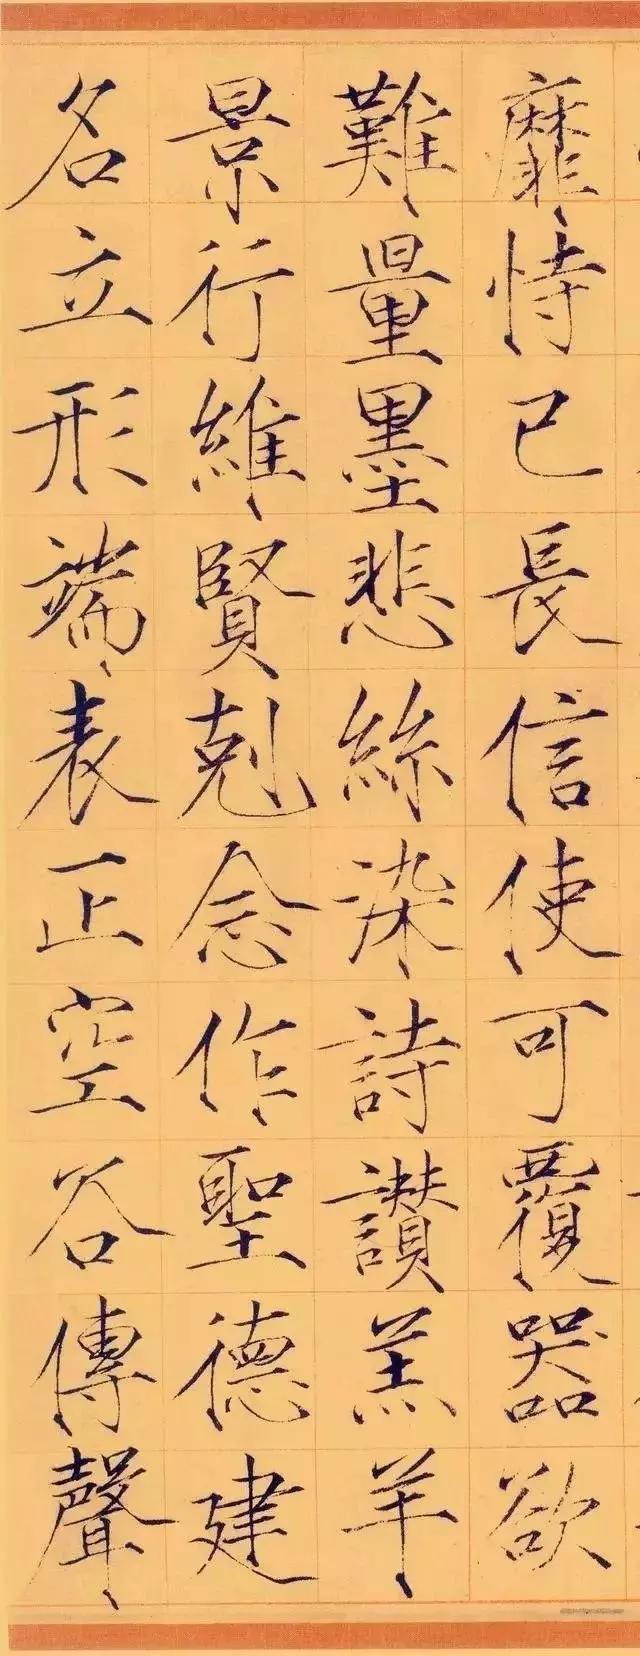 靡恃己長信使可覆器欲
難量墨悲絲染詩讃羔羊
景行維賢剋念作聖德建
名立形端表正空谷傳聲